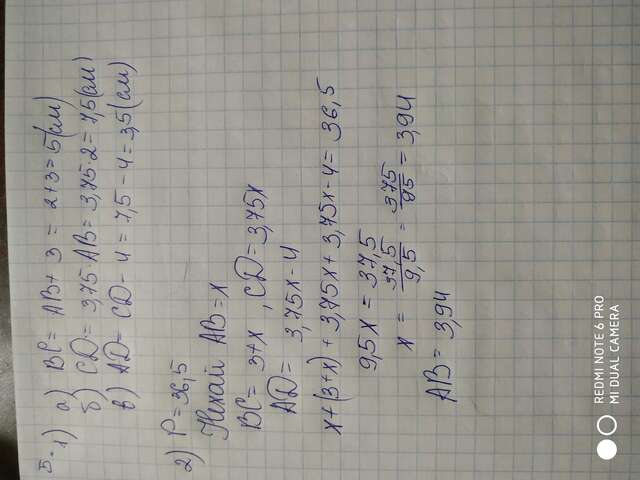 Б.
1) а) BC = AB + 3 = 2+3 = 5(см)
б) CD = 3,75 · AB = 3,75 · 2 = 7,5(см)
в) AD = CD - 4 = 7,5 - 4 = 3,5(см)
2) P = 36,5
Нехай AB = x
BC = 3+x , CD = 3,75x
AD = 3,75x - 4
x + (3+x) + 3,75x + 3,75x - 4 = 36,5
9,5x = 37,5
x = 37,5/9,5 = 375/95 = 3,94
AB = 3,94
REDMI NOTE 6 PRO
MI DUAL CAMERA